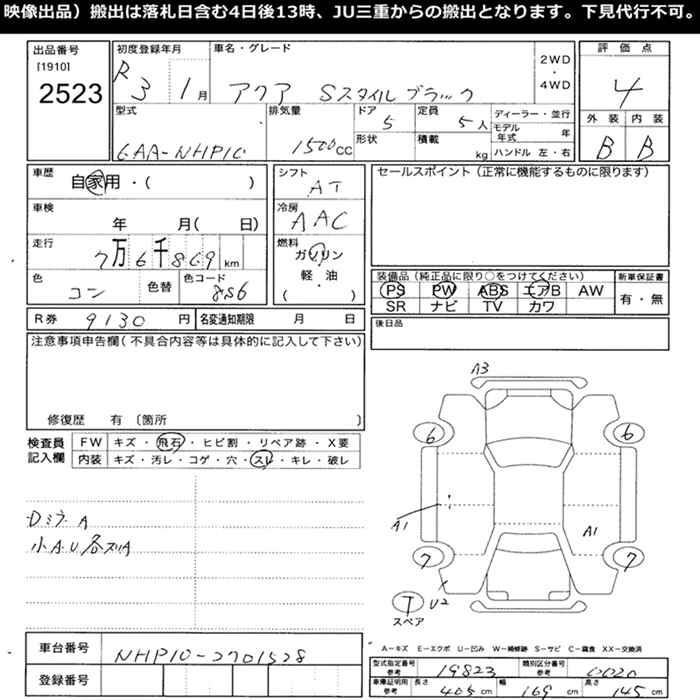 映像出品）搬出は落札日含む4日後13時、JU三重からの搬出となります。下見代行不可。
出品番号
[1910]
2523
初度登録年月
R3 1月
車名・グレード
アクア Sスタイルブラック
2WD・4WD
評価点
4
型式
6AA-NHP10
排気量
1500cc
ドア
5
形状
定員
5人
積載
kg
ディーラー・並行
モデル年式 年
ハンドル 左・右
外装 内装
B B
車歴
自家用・( )
シフト
AT
セールスポイント（正常に機能するものに限ります）
車検
年 月( 日)
冷房
AAC
走行
7万6千869km
燃料
ガソリン
軽・油
( )
色
コン
色替
色コード
8S6
装備品（純正品に限り○をつけてください）
PS PW ABS エアB AW
SR ナビ TV カワ
新車保証書
有・無
R券 9130円
名変通知期限 月 日
後日品
注意事項申告欄（不具合内容等は具体的に記入して下さい）
修復歴 有〔箇所 〕
検査員記入欄
FW キズ・飛石・ヒビ割・リペア跡・X要
内装 キズ・汚レ・コゲ・穴・スレ・キレ・破レ
Dミラ A
小A.U各スリA
A3
6 6
A1
A1
7 7
T
スペア
U2
A－キズ E－エクボ U－凹み W－補修跡 S－サビ C－腐食 XX－交換済
車台番号
NHP10-2701528
登録番号
型式指定番号 参考
19823
類別区分番号 参考
0020
車庫証明用 参考
長さ 405cm
幅 169cm
高さ 145cm